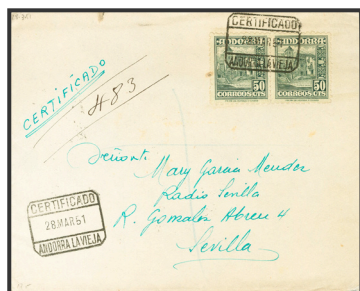 CERTIFICADO
ANDORRA LA VIEJA
ANDORRA ANDORRA
50 50
CORREOS CTS CORREOS CTS
CERTIFICADO
483
Mary Garcia Mendez
Radio Sevilla
R. Gonzalez Abreu 4
Sevilla
CERTIFICADO
28 MAR 61
ANDORRA LA VIEJA